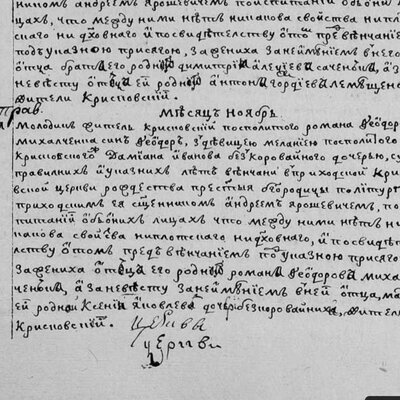 никомъ андреемъ ярошевичемъ поиспытаніи обоіхъ ли
цахъ, что между ними нѣтъ никакова свойства нипло
скаго ни духовнаго ипосвидѣтелству отомъ предвѣнчаніе
подъ указною присягою, заженика занеимѣніемъ
отца братъ его родный димитрій
невѣсту отецъ еи родный антонъ
жители Крисковскій
Мѣсяцъ Ноябрь
Молодикъ житель крисковскій посполитого романа Феодор
михалченка синъ Феодоръ, здѣвицею меланіею посполитого
крисковского Даміана іванова безкоровайного дочерью, су
правилнихъ и указнихъ лѣтъ вѣнчани вприходской Криск
вской церкви рождества пресвятыя богородицы
приходскимъ та священникомъ андреемъ ярошевичемъ, по
питаніи обоіхъ лицахъ что между ними нѣтъ ни
какова свойства ниплотскаго нидуховнаго, и посвидѣ
лству отомъ предъ вѣнчаніемъ подъ указною присяго
заженика отецъ его родный романъ Феодоровъ миха
ченокъ, азаневѣсту занеимѣніемъ вней отца, ма
еи родная Ксенія яковлева дочь безкоровайниха, жител
Крисковскіи.